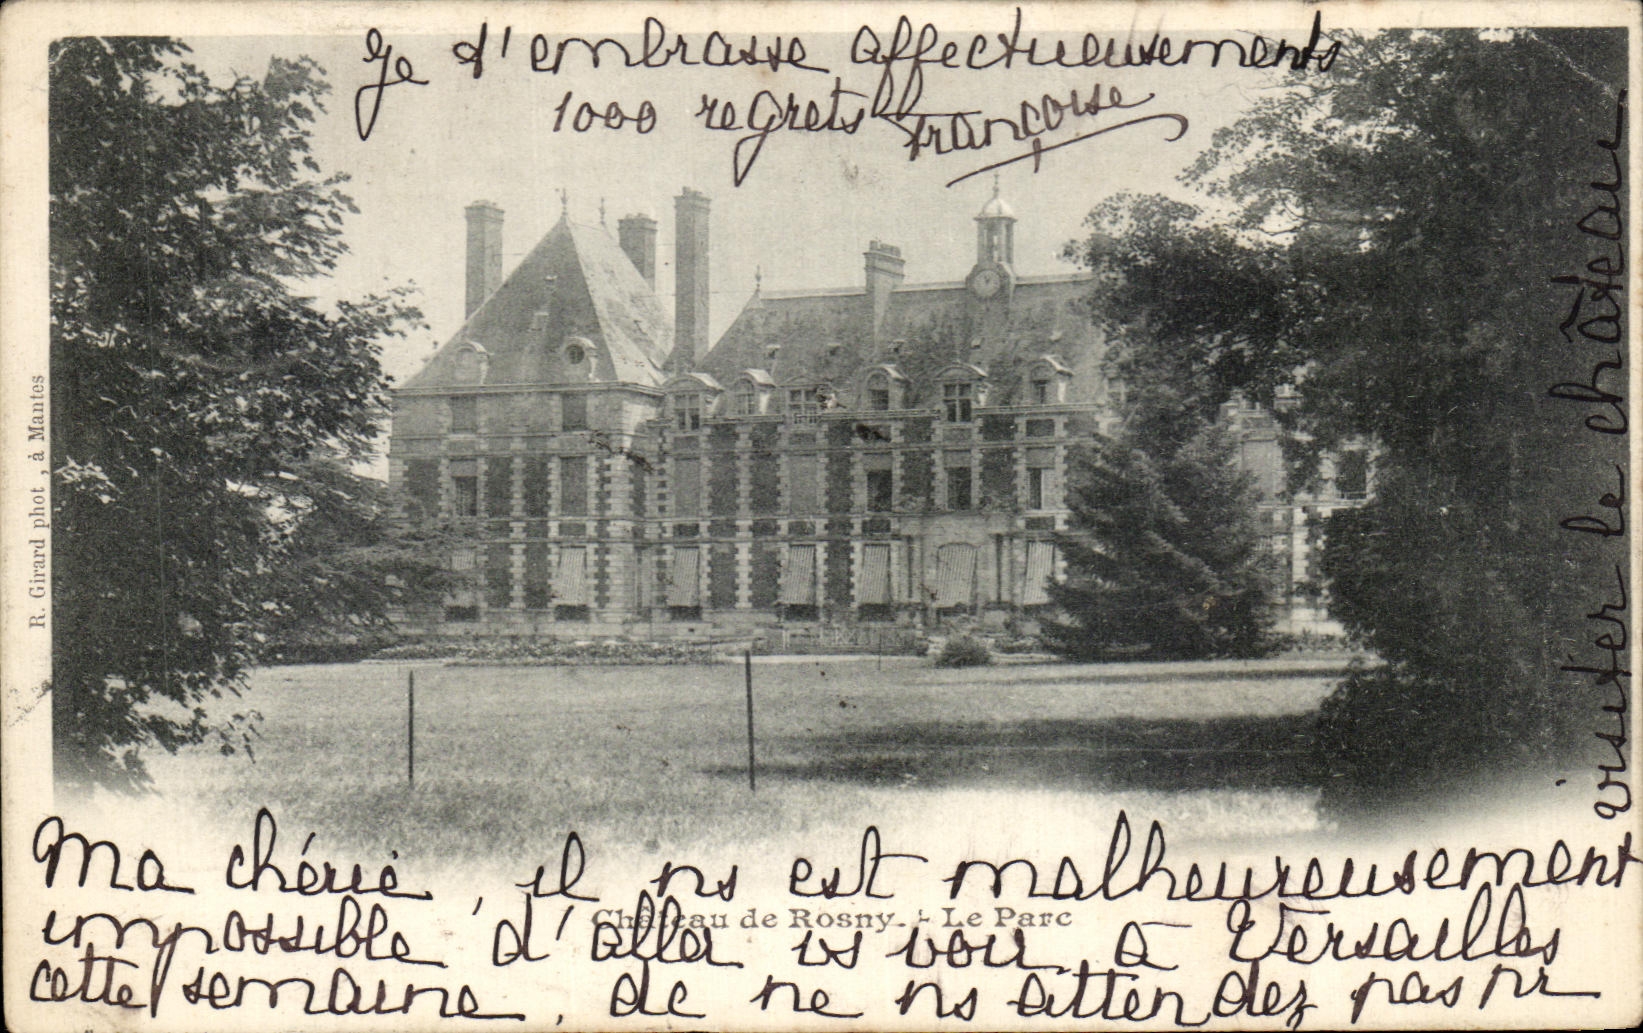 Je t'embrasse affectueusements
1000 regrets Françoise
R. Girard phot., à Mantes
Ma chérie, il ns est malheureusement
impossible d'aller vs voir à Versailles
Château de Rosny. - Le Parc
cette semaine, dc ne ns attendez pas pr
visiter le château